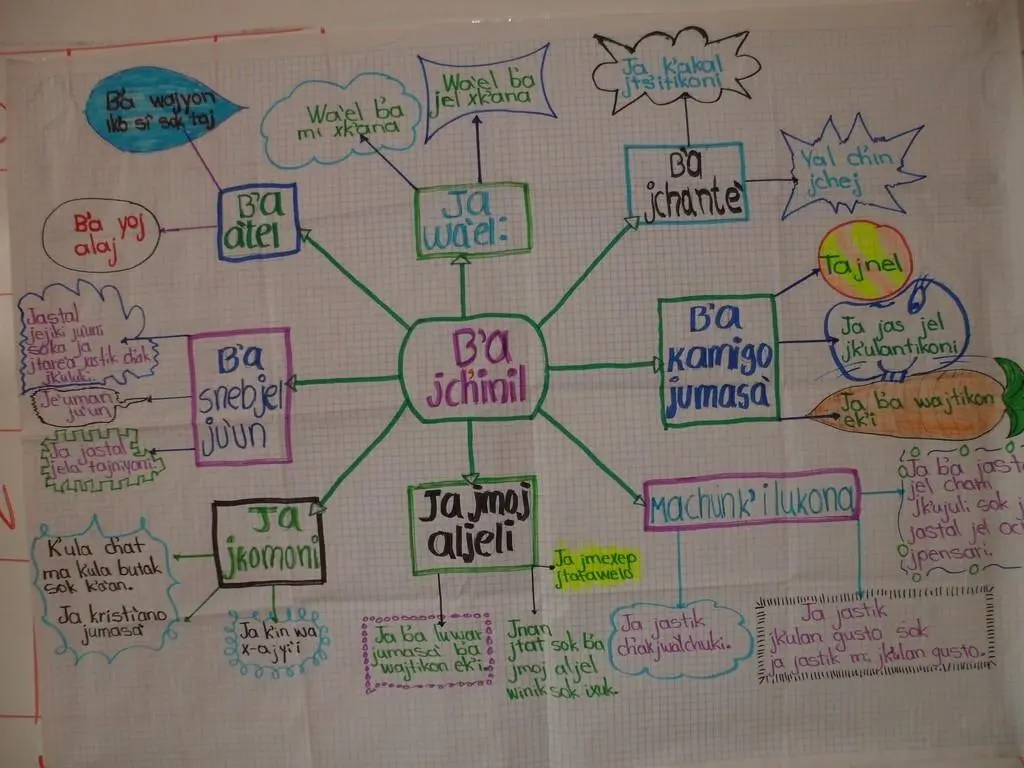 B'a wajyon
ikb si' sok taj
Wa'el b'a
mi xk'ana
Wa'el b'a
jel xk'ana
Ja k'ak'al
jtsitikoni
B'a
jchante'
Yal ch'in
jchej
B'a
a'tel
Ja
wa'el:
B'a yoj
alaj
Tajnel
Jastal
jejiki ju'uni
soka ja
jtare'a jastik
jkuluk.
B'a
snebjel
ju'un
B'a
jch'inil
B'a
kamigo
jumasa'
Ja jas jel
jkulantikoni
Ja b'a wajtikon
ek'i
Je'uman
ju'un
Ja jastal
jela tajniyoni.
Ja
jkomoni
Ja jmoj
aljeli
Machunk'ilukona
Ja b'a
jel cham
jk'ujuli sok
jastal jel
jpensari.
K'ula chat
ma kula butak
sok ka'an.
Ja kristiano
jumasa'
Ja k'in wa
x-ajyi'i
Ja b'a luwar
jumasa' b'a
wajtikon ek'i.
Jnan
jtat sok b'a
jmoj aljel
winik sok ixuk.
Ja jmexep
jtatawelo
Ja jastik
Ja jastik
jkulan gusto sok
ja jastik mi jkulan gusto.